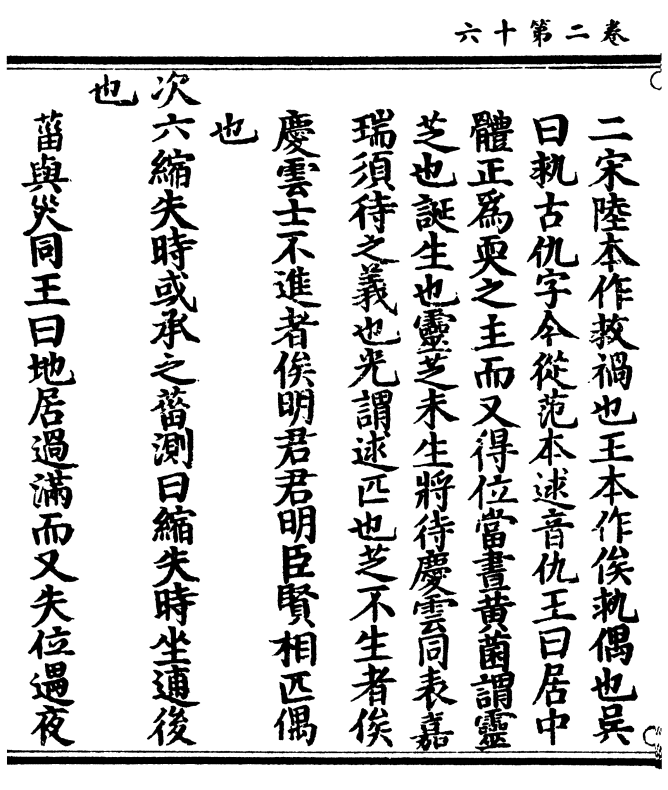 卷二第十六
二宋陸本作救禍也王本作俟偶也吴
曰古仇字今從范本逑音仇王曰居中
體正爲耎之主而又得位當晝黄菌謂靈
芝也誕生也靈芝未生將待慶雲同表嘉
瑞須待之義也光謂逑匹也芝不生者俟
慶雲士不進者俟明君君明臣賢相匹偶
也
次六縮失時或承之菑測曰縮失時坐逋後
也
菑與災同王曰地居過滿而又失位遇夜